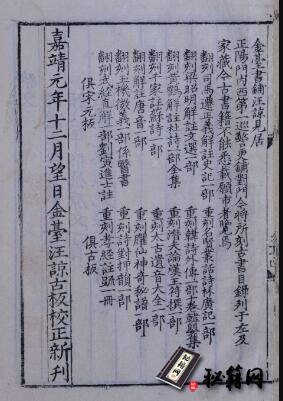 金臺書鋪汪諒見居
正陽門内西第一巡警更鋪對門今將所刻古書目錄列于左及
家藏今古書籍不能悉載願市者覽焉
翻刻司馬遷正義解註史記一部
翻刻梁昭明解註文選一部
翻刻黃鶴解註杜詩一部全集
翻刻千家註蘇詩一部
翻刻解註唐音一部
翻刻玉機微義一部係醫書
翻刻武經直解一部劉寅進士註
俱宋元板
重刻名賢叢話詩林廣記一部
重刻韓詩外傳一部十卷韓嬰集
重刻潛夫論漢王符撰一部
重刻太古遺音大全一部
重刻臞仙神奇秘譜一部
重刻詩對押韻一部
重刻孝經註疏一冊
俱古板
嘉靖元年十二月望日金臺汪諒古板校正新刊
秘籍网